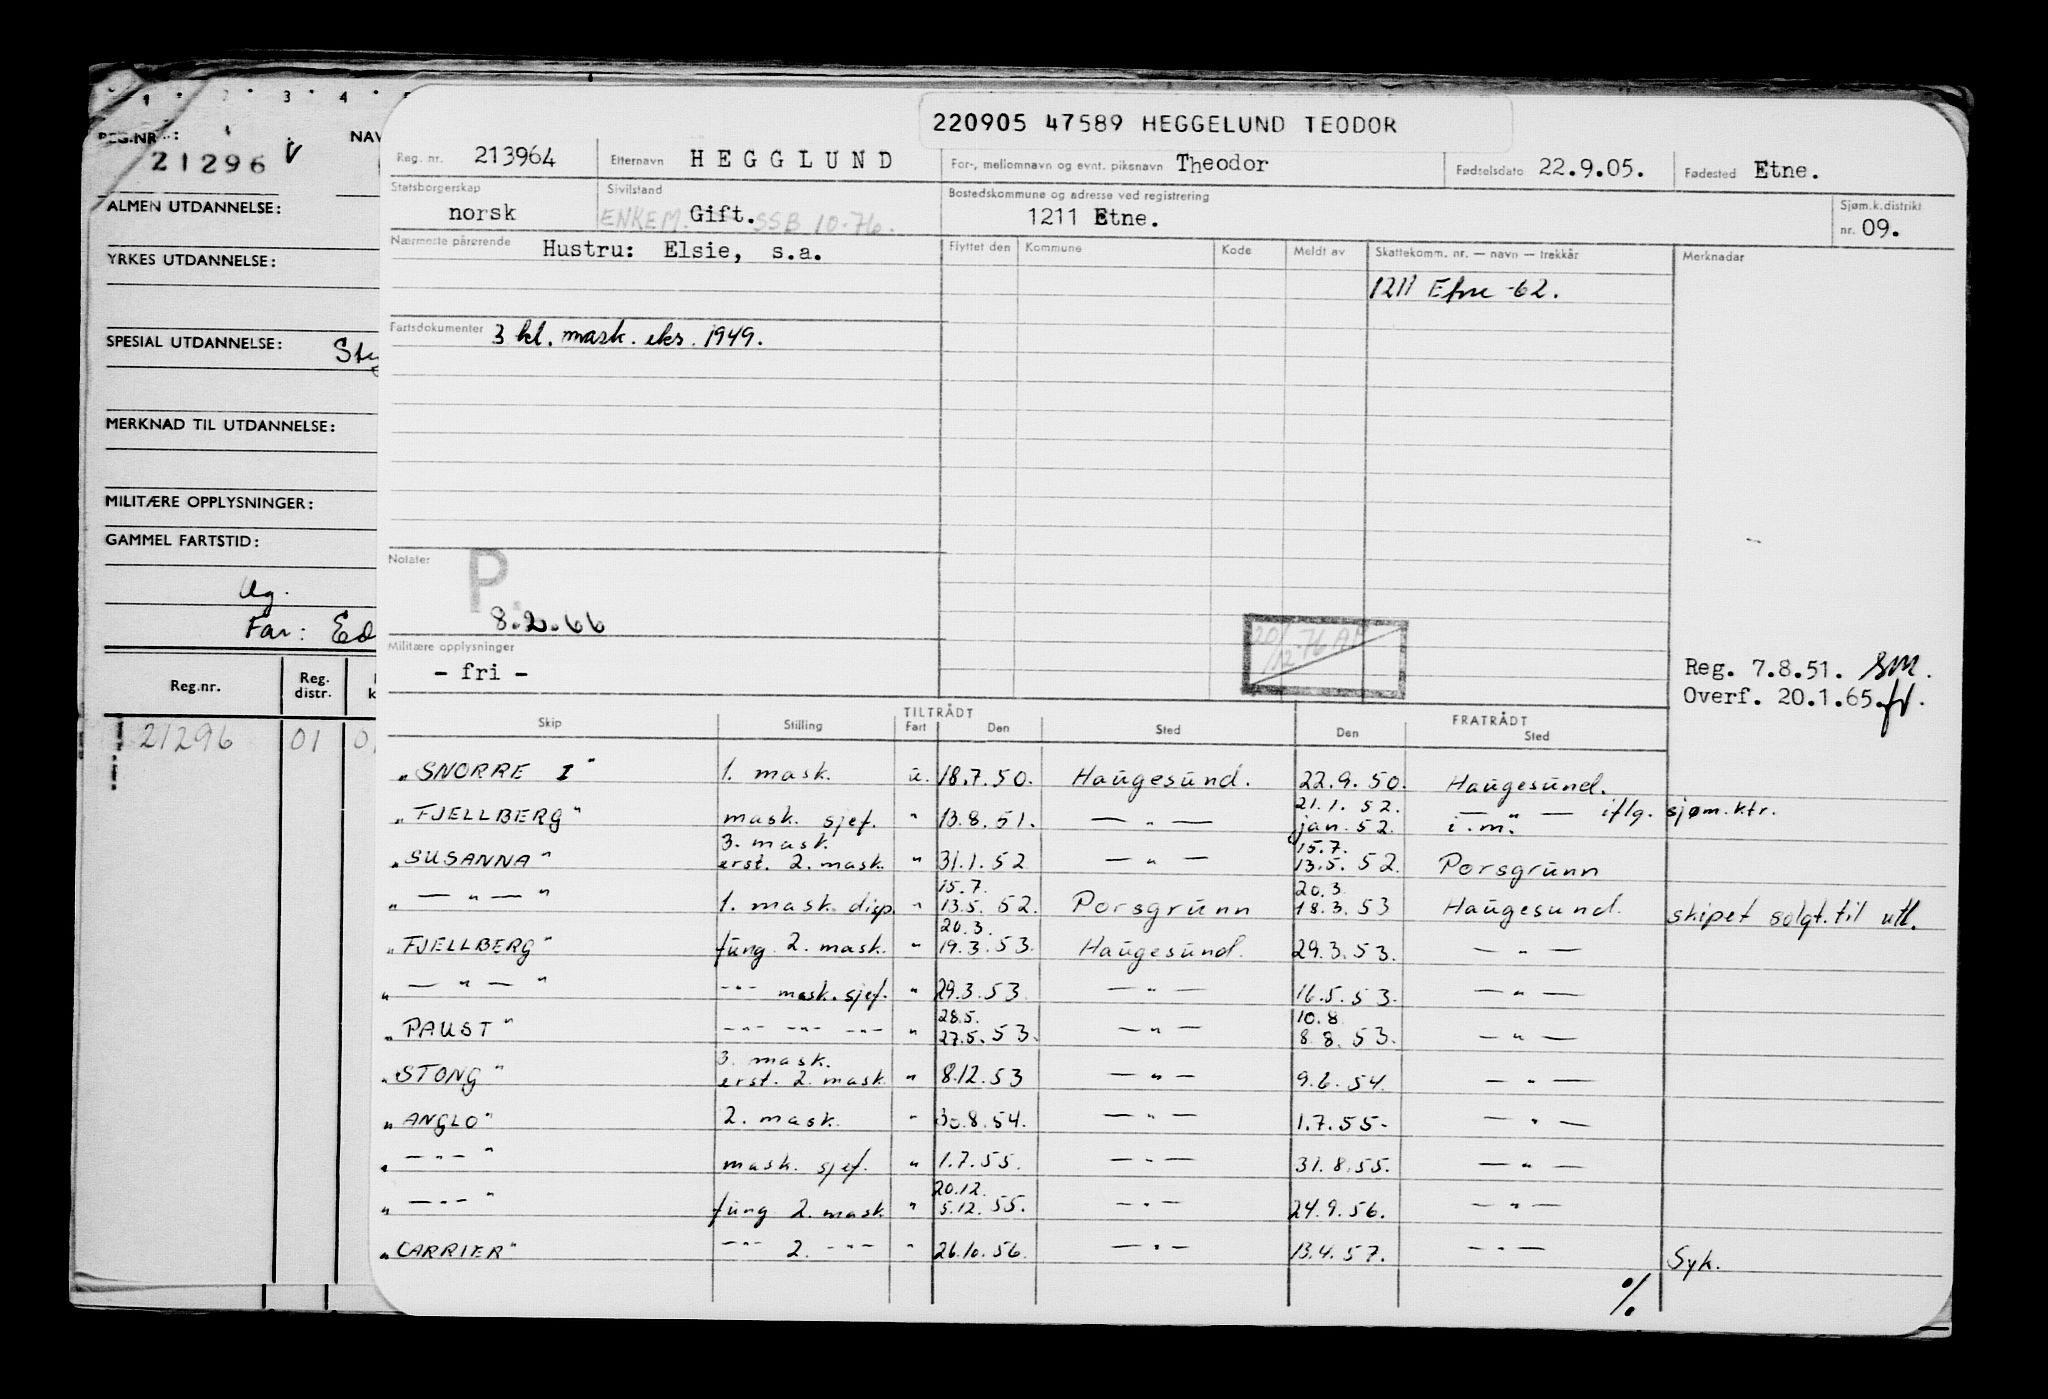 1 2 3 4 5
REG.NR.:
21296 V
NAV
ALMEN UTDANNELSE:
YRKES UTDANNELSE:
SPESIAL UTDANNELSE:
MERKNAD TIL UTDANNELSE:
MILITÆRE OPPLYSNINGER:
GAMMEL FARTSTID:
Ug.
Far: Ed
Reg.nr. Reg. distr. k
21296 01 0
220905 47589 HEGGELUND TEODOR
Reg. nr. 213964 Etternavn HEGGLUND For-, mellomnavn og evnt. pikenavn Theodor Fødselsdato 22.9.05. Fødested Etne.
Statsborgerskap Sivilstand Bostedskommune og adresse ved registrering Sjøm.k.distrikt
norsk ENKEM. Gift. SSB 10-76. 1211 Etne. nr. 09.
Nærmeste pårørende Hustru: Elsie, s.a. Flyttet den Kommune Kode Meldt av Skattekomm. nr. — navn — trekkår Merknader
1211 Etne -62.
Fartsdokumenter 3 kl. mask. eks. 1949.
Notater P.
8.2.66
20/12-76
Militære opplysninger
- fri -
Reg. 7.8.51. SM.
Overf. 20.1.65.
TILTRÅDT FRATRÅDT
Skip Stilling Fart Den Sted Den Sted
"SNORRE I" 1. mask. u. 18.7.50. Haugesund. 22.9.50. Haugesund.
21.1.52.
"FJELLBERG" mask. sjef. " 13.8.51. — " — jan. 52. — " — i.m. iflg. sjøm.ktr.
3. mask. 15.7.
"SUSANNA" erst. 2. mask. " 31.1.52 — " — 13.5.52. Porsgrunn
15.7. 20.3.
" — " — " 1. mask. disp. " 13.5.52. Porsgrunn 18.3.53 Haugesund. skipet solgt til utl.
20.3.
"FJELLBERG" fung. 2. mask. " 19.3.53. Haugesund. 29.3.53. — " —
" — " — " -"- mask. sjef. " 29.3.53. — " — 16.5.53. — " —
28.5. 10.8
"PAUST" -"- -"- -"- " 27.5.53. — " — 8.8.53. — " —
3. mask.
"STONG" erst. 2. mask. " 8.12.53 — " — 9.6.54. — " —
"ANGLO" 2. mask. " 30.8.54. — " — 1.7.55. — " —
" — " — " mask. sjef. " 1.7.55. — " — 31.8.55. — " —
20.12.
" — " — " fung 2. mask " 5.12.55. — " — 24.9.56. — " —
"CARRIER" -"- 2. -"- " 26.10.56. — " — 13.4.57. — " — Syk.
%